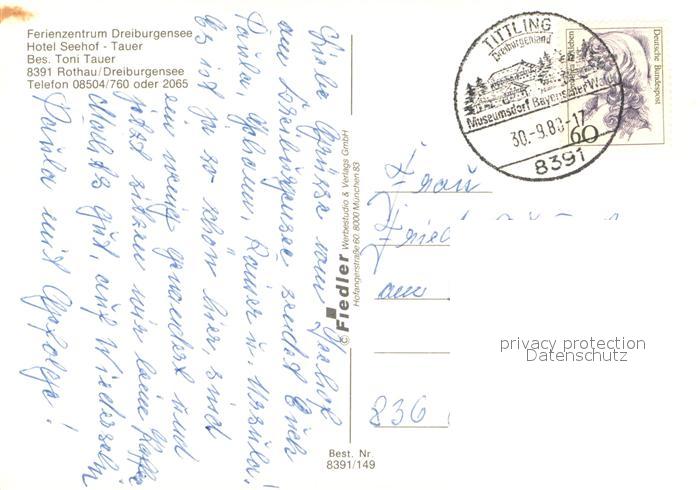 Ferienzentrum Dreiburgensee
Hotel Seehof - Tauer
Bes. Toni Tauer
8391 Rothau/Dreiburgensee
Telefon 08504/760 oder 2065
Liebe Grüsse vom Seehof
am Dreiburgensee sendet Euch
Paula, Johann, Rainer u. Ursula!
Es ist ja so schön hier, sind
ein wenig gewandert und
jetzt sitzen wir beim Kaffee
Machts gut, auf Wiedersehn
Paula mit Gefolge!
© Fiedler Werbestudio & Verlags GmbH
Hofangerstraße 60, 8000 München 83
Best. Nr.
8391/149
TITTLING
Dreiburgenland
Museumsdorf Bayerischer Wald
30.-9.88-17
8391
Deutsche Bundespost
60
Frau
Fried
am
836
privacy protection
Datenschutz